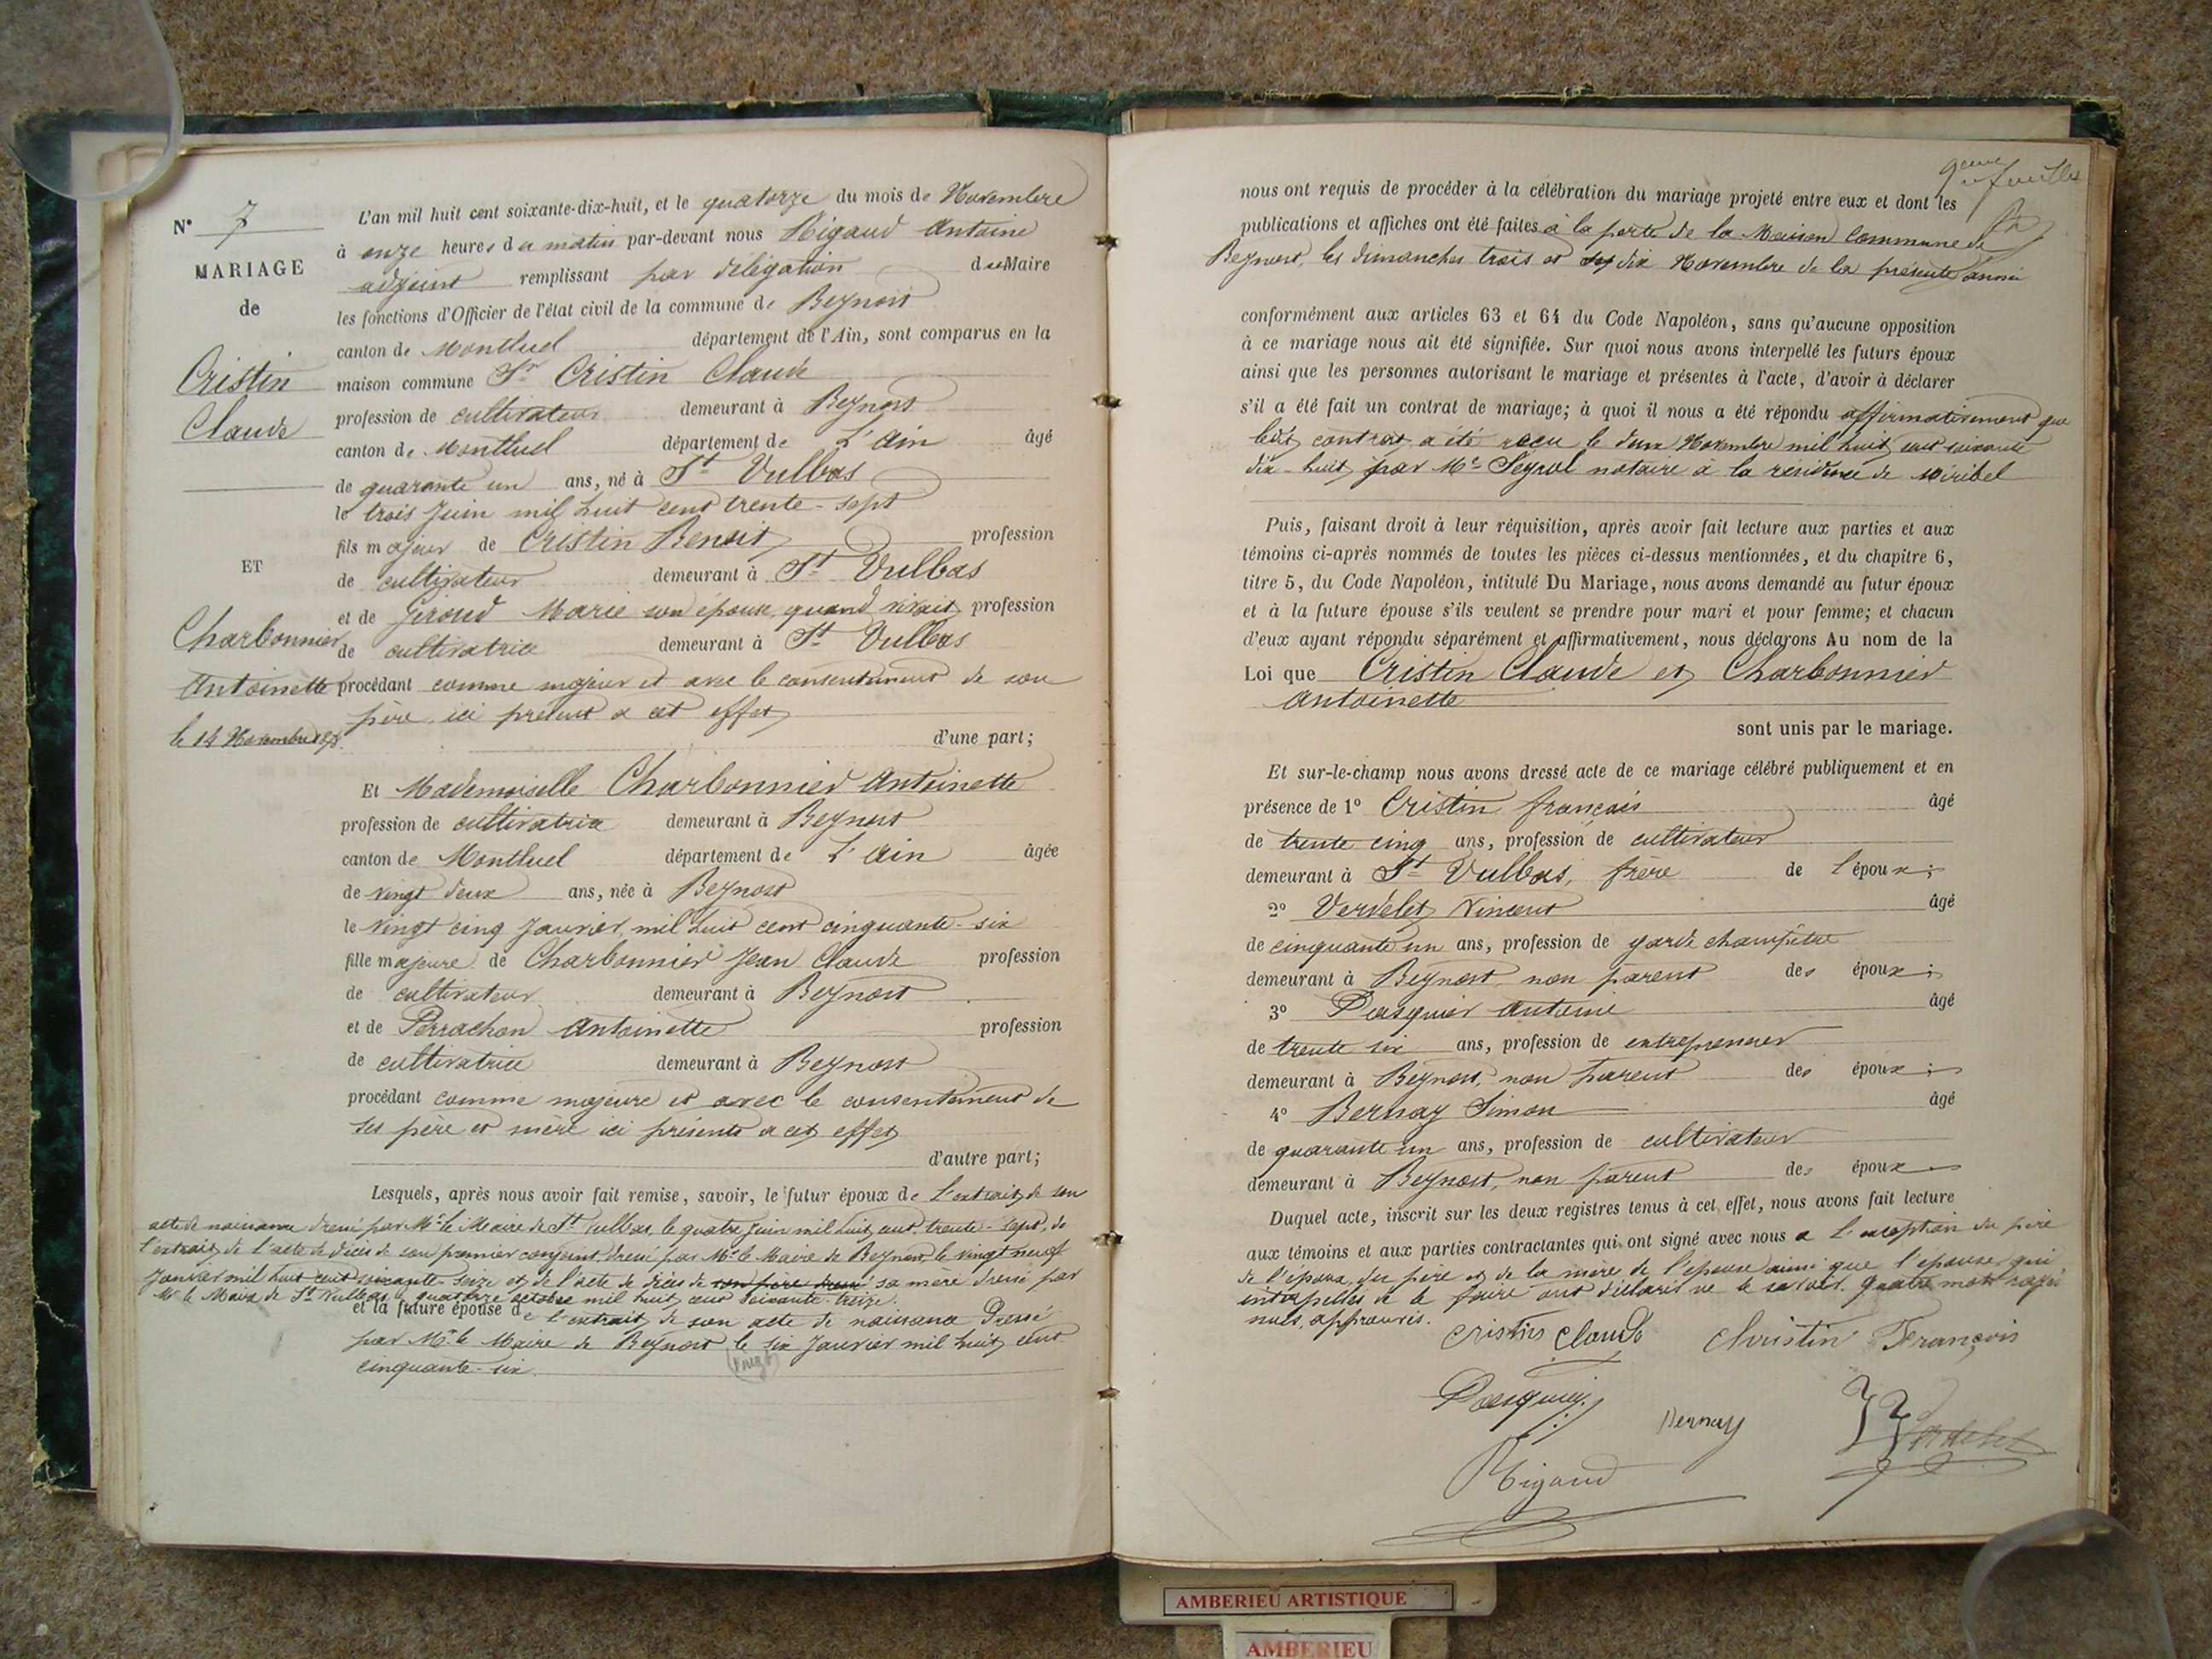 N° 7
MARIAGE
de
Cristin
Claude
ET
Charbonnier
Antoinette
le 14 Novembre 1878.
L'an mil huit cent soixante-dix-huit, et le quatorze du mois de Novembre
à onze heures du matin par-devant nous Rigaud Antoine
adjoint remplissant par délégation du Maire
les fonctions d'Officier de l'état civil de la commune de Beynost
canton de Montluel département de l'Ain, sont comparus en la
maison commune Sr Cristin Claude
profession de cultivateur demeurant à Beynost
canton de Montluel département de L'Ain âgé
de quarante un ans, né à St Vulbas
le trois Juin mil huit cent trente-sept
fils majeur de Cristin Benoit profession
de cultivateur demeurant à St Vulbas
et de Giroud Marie son épouse quand vivait profession
de cultivatrice demeurant à St Vulbas
procédant comme majeur et avec le consentement de son
père ici présent a cet effet
d'une part;
Et Mademoiselle Charbonnier Antoinette
profession de cultivatrice demeurant à Beynost
canton de Montluel département de L'Ain âgée
de vingt deux ans, née à Beynost
le vingt cinq Janvier mil huit cent cinquante-six
fille majeure de Charbonnier Jean Claude profession
de cultivateur demeurant à Beynost
et de Perrachon Antoinette profession
de cultivatrice demeurant à Beynost
procédant comme majeure et avec le consentement de
ses père et mère ici présents a cet effet
d'autre part;
Lesquels, après nous avoir fait remise, savoir, le futur époux de L'extrait de son
acte de naissance dressé par Mr le Maire de St Vulbas, le quatre Juin mil huit cent trente-sept, de
l'extrait de l'acte de décès de son premier conjoint dressé par Mr le Maire de Beynost le vingt neuf
Janvier mil huit cent soixante-seize et de l'acte de décès de son père dressé sa mère dressé par
Mr le Maire de St Vulbas le quatorze octobre mil huit cent soixante-treize.
et la future épouse de L'extrait de son acte de naissance Dressé
par Mr le Maire de Beynost le six Janvier mil huit cent
(vingt)
cinquante-six
9eme feuillet
nous ont requis de procéder à la célébration du mariage projeté entre eux et dont les
publications et affiches ont été faites à la porte de la Maison Commune de
Beynost, les dimanches trois et dix Novembre de la présente année
conformément aux articles 63 et 64 du Code Napoléon, sans qu'aucune opposition
à ce mariage nous ait été signifiée. Sur quoi nous avons interpellé les futurs époux
ainsi que les personnes autorisant le mariage et présentes à l'acte, d'avoir à déclarer
s'il a été fait un contrat de mariage; à quoi il nous a été répondu affirmativement que
contrat a été reçu le deux Novembre mil huit cent soixante
dix-huit par Me Seyvol notaire à la résidence de Miribel
Puis, faisant droit à leur réquisition, après avoir fait lecture aux parties et aux
témoins ci-après nommés de toutes les pièces ci-dessus mentionnées, et du chapitre 6,
titre 5, du Code Napoléon, intitulé Du Mariage, nous avons demandé au futur époux
et à la future épouse s'ils veulent se prendre pour mari et pour femme; et chacun
d'eux ayant répondu séparément et affirmativement, nous déclarons Au nom de la
Loi que Cristin Claude et Charbonnier
Antoinette
sont unis par le mariage.
Et sur-le-champ nous avons dressé acte de ce mariage célébré publiquement et en
présence de 1° Cristin français âgé
de trente cinq ans, profession de cultivateur
demeurant à St Vulbas, frère de l'époux;
2° Verdelet Vincent âgé
de cinquante un ans, profession de garde champêtre
demeurant à Beynost non parent des époux;
3° Pasquier Antoine âgé
de trente six ans, profession de entrepreneur
demeurant à Beynost, non parent des époux;
4° Bernay Simon âgé
de quarante un ans, profession de cultivateur
demeurant à Beynost, non parent des époux
Duquel acte, inscrit sur les deux registres tenus à cet effet, nous avons fait lecture
aux témoins et aux parties contractantes qui ont signé avec nous a L'exception du père
de l'époux, des père et de la mère de l'épouse ainsi que l'épouse qui
interpellés de le faire ont déclaré ne le savoir. Quatre mots rayés
nuls, approuvés.
Cristin Claude Christin François
Pasquier
Bernay
Verdelet
Rigaud
AMBERIEU ARTISTIQUE
AMBERIEU